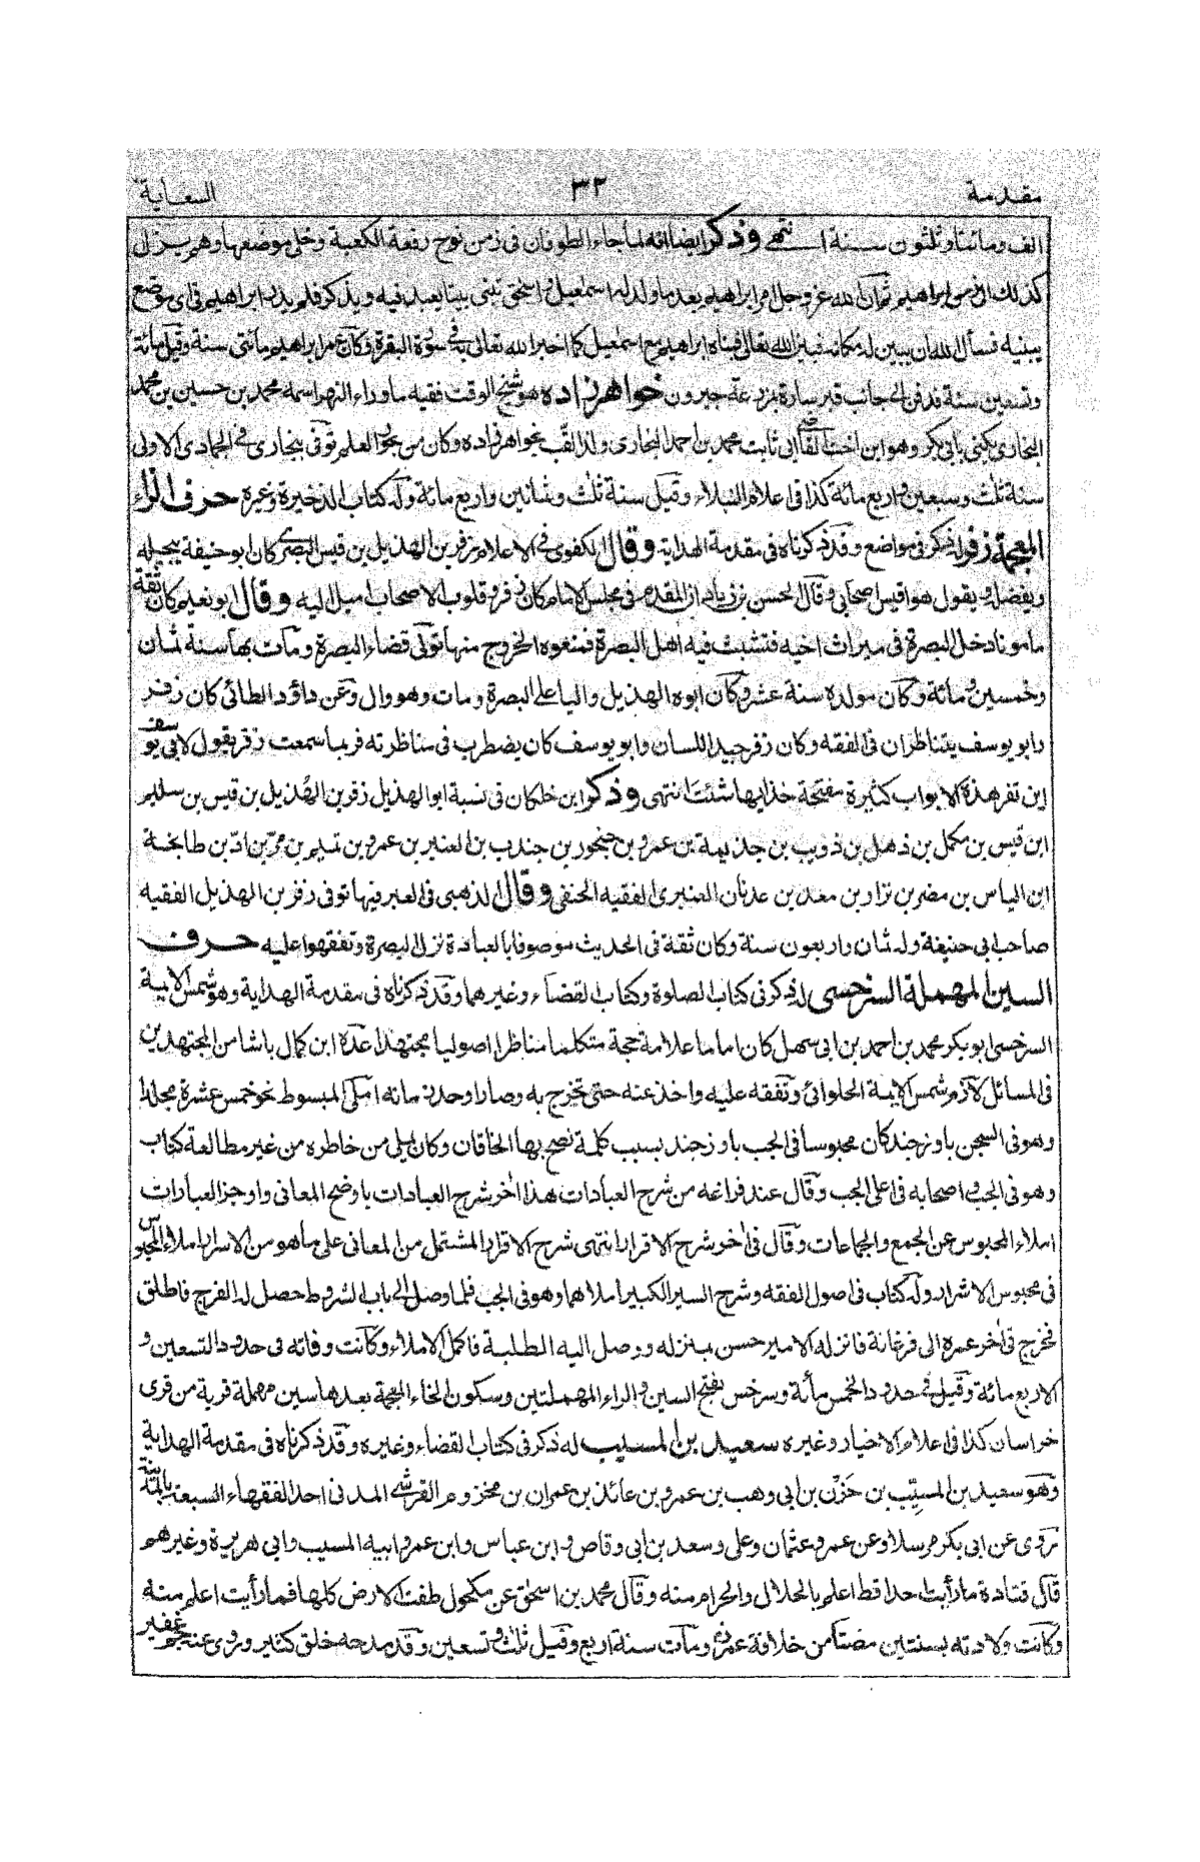 مقدمة
٣٢
السعاية
الف ومائتا وثلثون سنة انتهى وذكر ايضا انه لما جاء الطوفان فى زمن نوح رفعة الكعبة وخلى موضعها وهو يزل
كذلك الى زمن ابراهيم ثم ان الله عز وجل امر ابراهيم بعد ما ولد له اسمعيل واسحق ببنى بيتا يعبد فيه ويذكر فلم يدر ابراهيم فى اى موضع
يبنيه فسأل الله ان يبين له مكانه فبين الله تعالى فبناه ابراهيم مع اسمعيل كما اخبر الله تعالى به فى سورة البقرة وكان عمر ابراهيم مائتى سنة وقيل مائة
وتسعين سنة فدفن الى جانب قبر سارة بمزرعة جبرون خواهر زاده هو شيخ الوقت فقيه ما وراء النهر اسمه محمد بن حسين بن محمد
البخارى يكنى بابى بكر وهو ابن اخت القاضى ابى ثابت محمد بن احمد البخارى ولذا لقب بخواهر زاده وكان من بحور العلم توفى ببخارى فى الجمادى الاولى
سنة ثلث وسبعين واربع مائة كذا فى اعلام النبلاء وقيل سنة ثلث وثمانين واربع مائة وله كتاب الذخيرة وغيره حرف الزاء
المعجمة زفر له ذكر فى مواضع وقد ذكرناه فى مقدمة الهداية وقال الكفوى فى الاعلام زفر بن الهذيل بن قيس البصرى كان ابو حنيفة يبجله
ويفضله ويقول هو اقيس اصحابى وقال الحسن بن زياد ان المقدم فى مجلس الامام كان زفر وقلوب الاصحاب اميل اليه وقال ابو نعيم كان ثقة
مامونا دخل البصرة فى ميراث اخيه فتشبث فيه اهل البصرة فمنعوه الخروج منها تولى قضاء البصرة ومات بها سنة ثمان
وخمسين ومائة وكان مولده سنة عشر وكان ابوه الهذيل واليا على البصرة ومات وهو وال وعن داؤد الطائى كان زفر
وابو يوسف يتناظران فى الفقه وكان زفر جيد اللسان وابو يوسف كان يضطرب فى مناظرته فربما سمعت زفر يقول لابى يوسف
اين تفر هذه الابواب كثيرة مفتحة خذ ايها شئت انتهى وذكر ابن خلكان فى نسبة ابو الهذيل زفر بن الهُذيل بن قيس بن سليم
ابن قيس بن مكمل بن ذهل بن ذويب بن جذيمة بن عمرو بن حنجور بن جندب بن العنبر بن عمرو بن تميم بن مر بن ادّ بن طابخة
ابن الياس بن مضر بن نزار بن معد بن عدنان العنبرى الفقيه الحنفى وقال الذهبى فى العبر فيها توفى زفر بن الهذيل الفقيه
صاحب ابى حنيفة وله ثمان واربعون سنة وكان ثقة فى الحديث موصوفا بالعبادة نزل البصرة وتفقهوا عليه حرف
السين المهملة السرخسى له ذكر فى كتاب الصلوة وكتاب القضاء وغيرهما وقد ذكرناه فى مقدمة الهداية وهو شمس الايمة
السرخسى ابو بكر محمد بن احمد بن ابى سهل كان اماما علامة حجة متكلما مناظرا اصوليا مجتهدا عدّه ابن كمال باشا من المجتهدين
فى المسائل لازم شمس الايمة الحلوائى وتفقه عليه واخذ عنه حتى تخرج به وصار اوحد زمانه املى المبسوط نحو خمس عشرة مجلدا
وهو فى السجن باوزجند كان محبوسا فى الجب باوزجند بسبب كلمة نصح بها الخاقان وكان يملى من خاطره من غير مطالعة كتاب
وهو فى الجب واصحابه فى اعلى الجب وقال عند فراغه من شرح العبادات هذا اخر شرح العبادات باوضح المعانى واوجز العبارات
املاء المحبوس عن الجمع والجماعات وقال فى اخر شرح الاقرار انتهى شرح الاقرار المشتمل من المعانى على ما هو من الاسرار املاء المحبوس
فى محبوس الاشرار وله كتاب فى اصول الفقه وشرح السير الكبير املاهما وهو فى الجب فلما وصل الى باب الشروط حصل له الفرج فاطلق
فخرج فى اخر عمره الى فرغانة فانزله الامير حسن بمنزله ووصل اليه الطلبة فاكمل الاملاء وكانت وفاته فى حدود التسعين و
الاربع مائة وقيل فى حدود الخمس مأئة وسرخس بفتح السين والراء المهملتين وسكون الخاء المعجمة بعدها سين مهملة قرية من قرى
خراسان كذا فى اعلام الاخيار وغيره سعيد بن المسيب له ذكر فى كتاب القضاء وغيره وقد ذكرناه فى مقدمة الهداية
وهو سعيد بن المسيِّب بن حَزْن بن ابى وهب بن عمرو بن عائذ بن عمران بن مخزوم القرشى المدنى احد الفقهاء السبعة بالمدينة
تروى عن ابى بكر مرسلا وعن عمر وعثمان وعلى وسعد بن ابى وقاص وابن عباس وابن عمر وابيه المسيب وابى هريرة وغيرهم
قال قتادة ما رأيت احدا قط اعلم بالحلال والحرام منه وقال محمد بن اسحق عن مكحول طفت الارض كلها فما رأيت اعلم منه
وكانت ولادته بسنتين مضتا من خلافة عمر ومات سنة اربع وقيل ثلث وتسعين وقد مدحه خلق كثير وروى عنه جم غفير